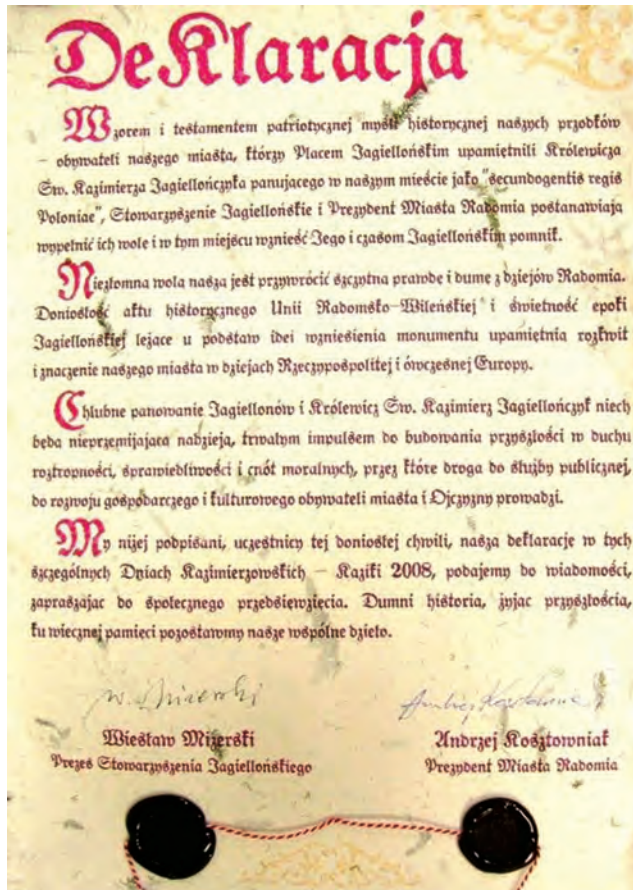 DeKlaracja
Wzorem i testamentem patriotycznej myśli historycznej naszych przodków
– obywateli naszego miasta, którzy Placem Jagiellońskim upamiętnili Królewicza
Św. Kazimierza Jagiellończyka panującego w naszym mieście jako "secundogentis regis
Poloniae", Stowarzyszenie Jagiellońskie i Prezydent Miasta Radomia postanawiają
wypełnić ich wole i w tym miejscu wznieść Jego i czasom Jagiellońskim pomnik.
Niezłomna wola nasza jest przywrócić szczytna prawde i dume z dziejów Radomia.
Doniosłość aktu historycznego Unii Radomsko–Wileńskiej i świetność epoki
Jagiellońskiej leżace u podstaw idei wzniesienia monumentu upamiętnia rozkwit
i znaczenie naszego miasta w dziejach Rzeczypospolitej i ówczesnej Europy.
Chlubne panowanie Jagiellonów i Królewicz Św. Kazimierz Jagiellończyk niech
beda nieprzemijajaca nadzieja, trwałym impulsem do budowania przyszłości w duchu
roztropności, sprawiedliwości i cnót moralnych, przez które droga do służby publicznej,
do rozwoju gospodarczego i kulturowego obywateli miasta i Ojczyzny prowadzi.
My niżej podpisani, uczestnicy tej doniosłej chwili, nasza deklaracje w tych
szczególnych Dniach Kazimierzowskich – Kaziki 2008, podajemy do wiadomości,
zapraszajac do społecznego przedsiewziecia. Dumni historia, żyjac przyszłościa,
ku wiecznej pamieci pozostawmy nasze wspólne dzieło.
W. Mizerski
Andrzej Kosztowniak
Wiesław Mizerski
Andrzej Kosztowniak
Prezes Stowarzyszenia Jagiellońskiego
Prezydent Miasta Radomia